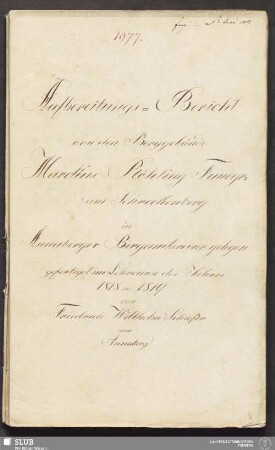 1977.
Aufbereitungs = Bericht
von dem Berggebäude
Markus Röhling Fundgr.
am Schreckenberg
in
Annaberger Bergamtsrevier gelegen
gefertigt im Lehrcurse des Jahres
1818 – 1819
von
Friedrich Wilhelm
aus
Annaberg
SLUB
Wir führen Wissen.